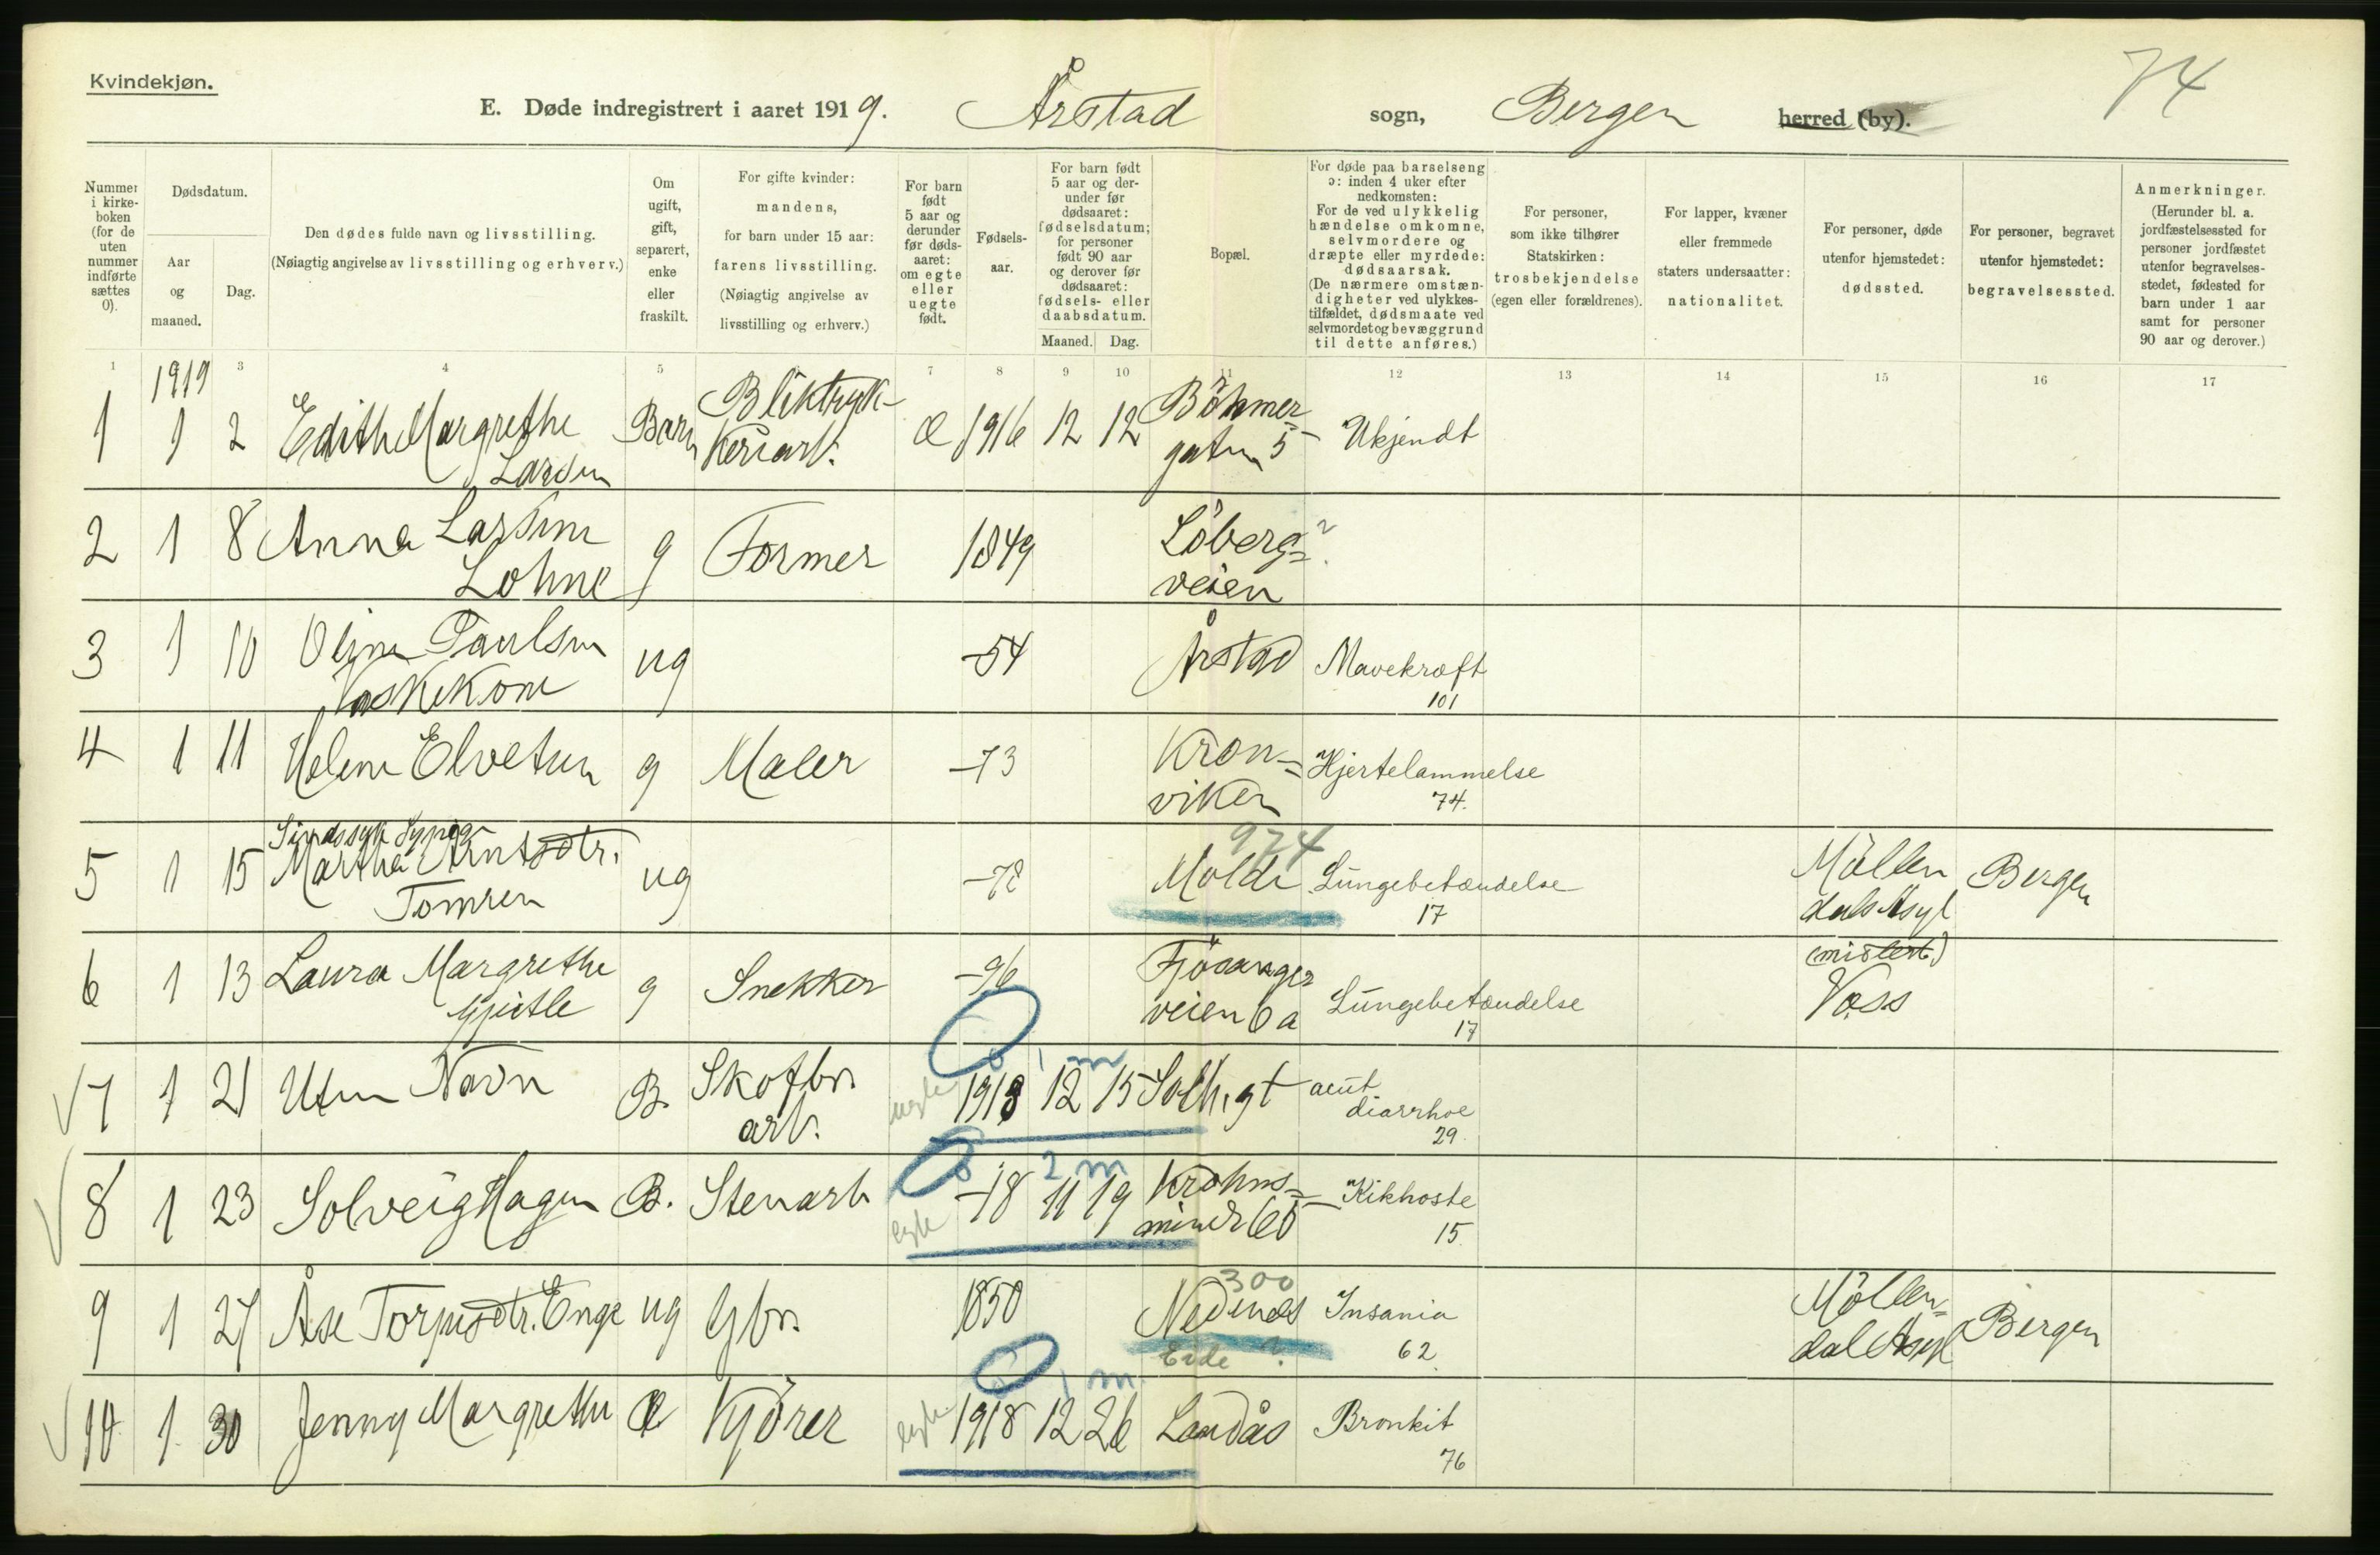 Kvindekjøn.
74
E. Døde indregistrert i aaret 1919. Årstad sogn, Bergen herred (by).
Nummer i kirkeboken (for de uten nummer indførte sættes 0).
Dødsdatum.
Aar og maaned.
Dag.
Den dødes fulde navn og livsstilling.
(Nøiagtig angivelse av livsstilling og erhverv.)
Om ugift, gift, separert, enke eller fraskilt.
For gifte kvinder: mandens, for barn under 15 aar: farens livsstilling. (Nøiagtig angivelse av livsstilling og erhverv.)
For barn født 5 aar og derunder før dødsaaret: om egte eller uegte født.
Fødselsaar.
For barn født 5 aar og derunder før dødsaaret: fødselsdatum; for personer født 90 aar og derover før dødsaaret: fødsels- eller daabsdatum.
Maaned. Dag.
Bopæl.
For døde paa barselseng ɔ: inden 4 uker efter nedkomsten: For de ved ulykkelig hændelse omkomne, selvmordere og dræpte eller myrdede: dødsaarsak. (De nærmere omstændigheter ved ulykkestilfældet, dødsmaate ved selvmordet og bevæggrund til dette anføres.)
For personer, som ikke tilhører Statskirken: trosbekjendelse (egen eller forældrenes).
For lapper, kvæner eller fremmede staters undersaatter: nationalitet.
For personer, døde utenfor hjemstedet: dødssted.
For personer, begravet utenfor hjemstedet: begravelsessted.
Anmerkninger. (Herunder bl. a. jordfæstelsessted for personer jordfæstet utenfor begravelsesstedet, fødested for barn under 1 aar samt for personer 90 aar og derover.)
1 3 4 5 7 8 9 10 11 12 13 14 15 16 17
1919
1 1 2 Edith Margrethe Larsen Barn Bliktrykkeriarb. Æ 1916 12 12 Böhmergaten 5 Ukjendt
2 1 8 Anna Larsine Lohne g Former 1849 Löbergsveien
3 1 10 Oline Paulsen Vaskekone ug -54 Årstad Mavekræft 101
4 1 11 Helene Elvetun g Maler -73 Kronviken Hjertelammelse 74.
5 1 15 Sindssyk Martha Arntsdtr. Tomren ug -72 974 Molde Lungebetændelse 17 Möllendals Asyl Bergen
6 1 13 Laura Margrethe g Snekker -96 Fjösangerveien 6a Lungebetændelse 17 Voss
7 1 21 Uten Navn B. Skofbr. arb. uegte 0 1 m 1918 12 15 Solh.gt acut diarrhoe 29.
8 1 23 Solveig Hagen B. Stenarb egte 0 2 m -18 11 19 Krohnsminde 60 Kikhoste 15.
9 1 27 Åse Torjusdtr. Enge ug Gbr. 1850 300 Nedenes Eide ? Insania 62 Möllendal Asyl Bergen
10 1 30 Jenny Margrethe Kjörer egte 0 1 m 1918 12 26 Landås Bronkit 76